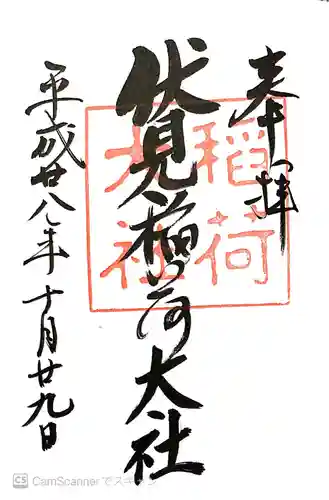 奉拝
伏見稲荷大社
平成廿八年十月廿九日
稲荷
大社
CS CamScannerでスキャン